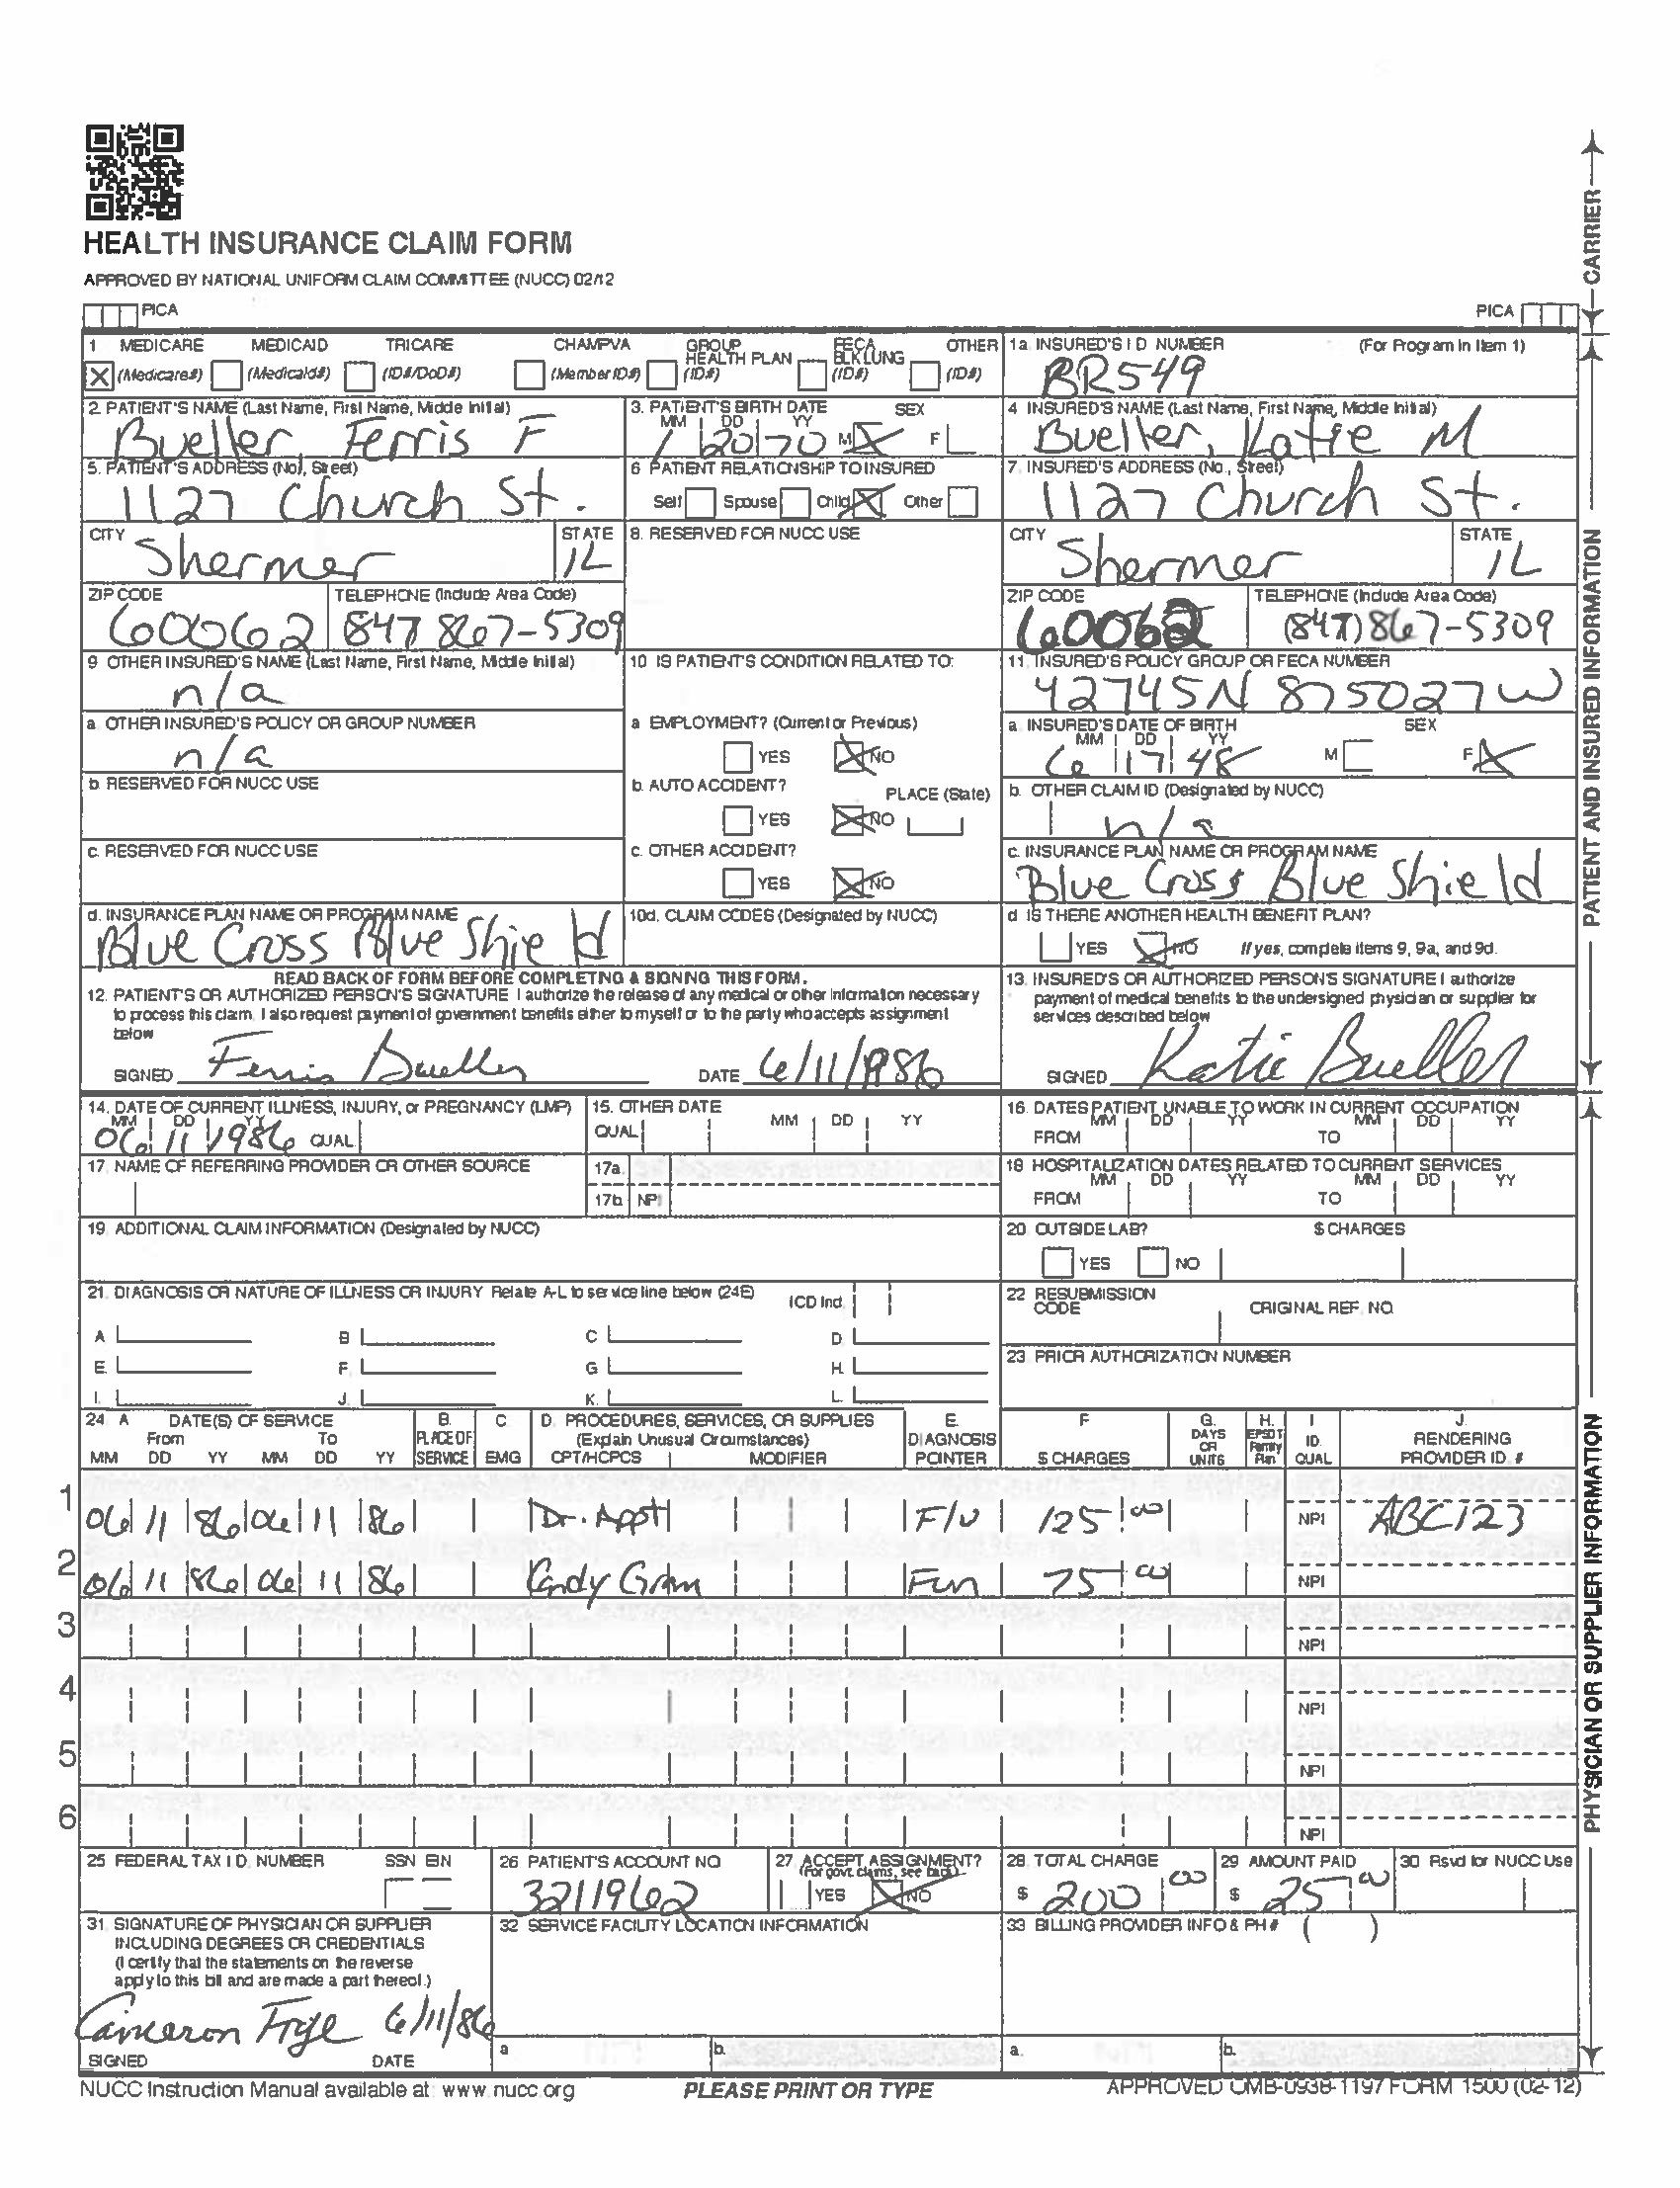 HEALTH INSURANCE CLAIM FORM
APPROVED BY NATIONAL UNIFORM CLAIM COMMITTEE (NUCC) 02/12
PICA
PICA
CARRIER
1 MEDICARE MEDICAID TRICARE CHAMPVA GROUP HEALTH PLAN FECA BLK LUNG OTHER
X (Medicare#) (Medicaid#) (ID#/DoD#) (Member ID#) (ID#) (ID#) (ID#)
1a. INSURED'S I D NUMBER (For Program in Item 1)
BR549
2. PATIENT'S NAME (Last Name, First Name, Middle Initial)
Bueller, Ferris F
3. PATIENT'S BIRTH DATE SEX
MM DD YY
1 20 70 M X F
4 INSURED'S NAME (Last Name, First Name, Middle Initial)
Bueller, Katie M
5. PATIENT'S ADDRESS (No., Street)
1127 Church St.
6 PATIENT RELATIONSHIP TO INSURED
Self Spouse Child X Other
7. INSURED'S ADDRESS (No., Street)
1127 Church St.
CITY STATE
Shermer IL
8. RESERVED FOR NUCC USE
CITY STATE
Shermer IL
ZIP CODE TELEPHONE (Include Area Code)
60062 847 867-5309
ZIP CODE TELEPHONE (Include Area Code)
60062 (847) 867-5309
9 OTHER INSURED'S NAME (Last Name, First Name, Middle Initial)
n/a
10 IS PATIENT'S CONDITION RELATED TO:
11. INSURED'S POLICY GROUP OR FECA NUMBER
42745N 875027W
a. OTHER INSURED'S POLICY OR GROUP NUMBER
n/a
a EMPLOYMENT? (Current or Previous)
YES X NO
a. INSURED'S DATE OF BIRTH SEX
MM DD YY
6 17 48 M F X
b. RESERVED FOR NUCC USE
b. AUTO ACCIDENT? PLACE (State)
YES X NO
b. OTHER CLAIM ID (Designated by NUCC)
n/a
c. RESERVED FOR NUCC USE
c. OTHER ACCIDENT?
YES X NO
c. INSURANCE PLAN NAME OR PROGRAM NAME
Blue Cross Blue Shield
d. INSURANCE PLAN NAME OR PROGRAM NAME
Blue Cross Blue Shield
10d. CLAIM CODES (Designated by NUCC)
d IS THERE ANOTHER HEALTH BENEFIT PLAN?
YES X NO If yes, complete items 9, 9a, and 9d.
READ BACK OF FORM BEFORE COMPLETING & SIGNING THIS FORM.
12. PATIENT'S OR AUTHORIZED PERSON'S SIGNATURE I authorize the release of any medical or other information necessary
to process this claim. I also request payment of government benefits either to myself or to the party who accepts assignment
below
SIGNED Ferris Bueller DATE 6/11/1986
13. INSURED'S OR AUTHORIZED PERSON'S SIGNATURE I authorize
payment of medical benefits to the undersigned physician or supplier for
services described below
SIGNED Katie Bueller
PATIENT AND INSURED INFORMATION
14. DATE OF CURRENT ILLNESS, INJURY, or PREGNANCY (LMP)
MM DD YY
06 11 1986 QUAL
15. OTHER DATE
QUAL MM DD YY
16. DATES PATIENT UNABLE TO WORK IN CURRENT OCCUPATION
MM DD YY MM DD YY
FROM TO
17. NAME OF REFERRING PROVIDER OR OTHER SOURCE
17a.
17b. NPI
18 HOSPITALIZATION DATES RELATED TO CURRENT SERVICES
MM DD YY MM DD YY
FROM TO
19. ADDITIONAL CLAIM INFORMATION (Designated by NUCC)
20. OUTSIDE LAB? $ CHARGES
YES NO
21. DIAGNOSIS OR NATURE OF ILLNESS OR INJURY Relate A-L to service line below (24E) ICD Ind.
A B C D.
E. F. G H.
I. J. K. L.
22 RESUBMISSION CODE ORIGINAL REF. NO.
23. PRIOR AUTHORIZATION NUMBER
24. A DATE(S) OF SERVICE B. C D. PROCEDURES, SERVICES, OR SUPPLIES E. F G. H. I J.
From To PLACE OF (Explain Unusual Circumstances) DIAGNOSIS DAYS OR EPSDT Family ID. RENDERING
MM DD YY MM DD YY SERVICE EMG CPT/HCPCS MODIFIER POINTER $ CHARGES UNITS Plan QUAL PROVIDER ID. #
1 06 11 86 06 11 86 Dr. Appt F/U 125 00 NPI ABC123
2 06 11 86 06 11 86 Candy Gram Fun 75 00 NPI
3 NPI
4 NPI
5 NPI
6 NPI
25 FEDERAL TAX I D. NUMBER SSN EIN
26 PATIENT'S ACCOUNT NO
3211962
27. ACCEPT ASSIGNMENT?
(For govt. claims, see back)
YES X NO
28. TOTAL CHARGE
$ 200 00
29 AMOUNT PAID
$ 25 00
30 Rsvd for NUCC Use
31. SIGNATURE OF PHYSICIAN OR SUPPLIER
INCLUDING DEGREES OR CREDENTIALS
(I certify that the statements on the reverse
apply to this bill and are made a part thereof.)
Cameron Frye 6/11/86
SIGNED DATE
32 SERVICE FACILITY LOCATION INFORMATION
a b.
33 BILLING PROVIDER INFO & PH # ( )
a. b.
PHYSICIAN OR SUPPLIER INFORMATION
NUCC Instruction Manual available at: www.nucc.org
PLEASE PRINT OR TYPE
APPROVED OMB-0938-1197 FORM 1500 (02-12)